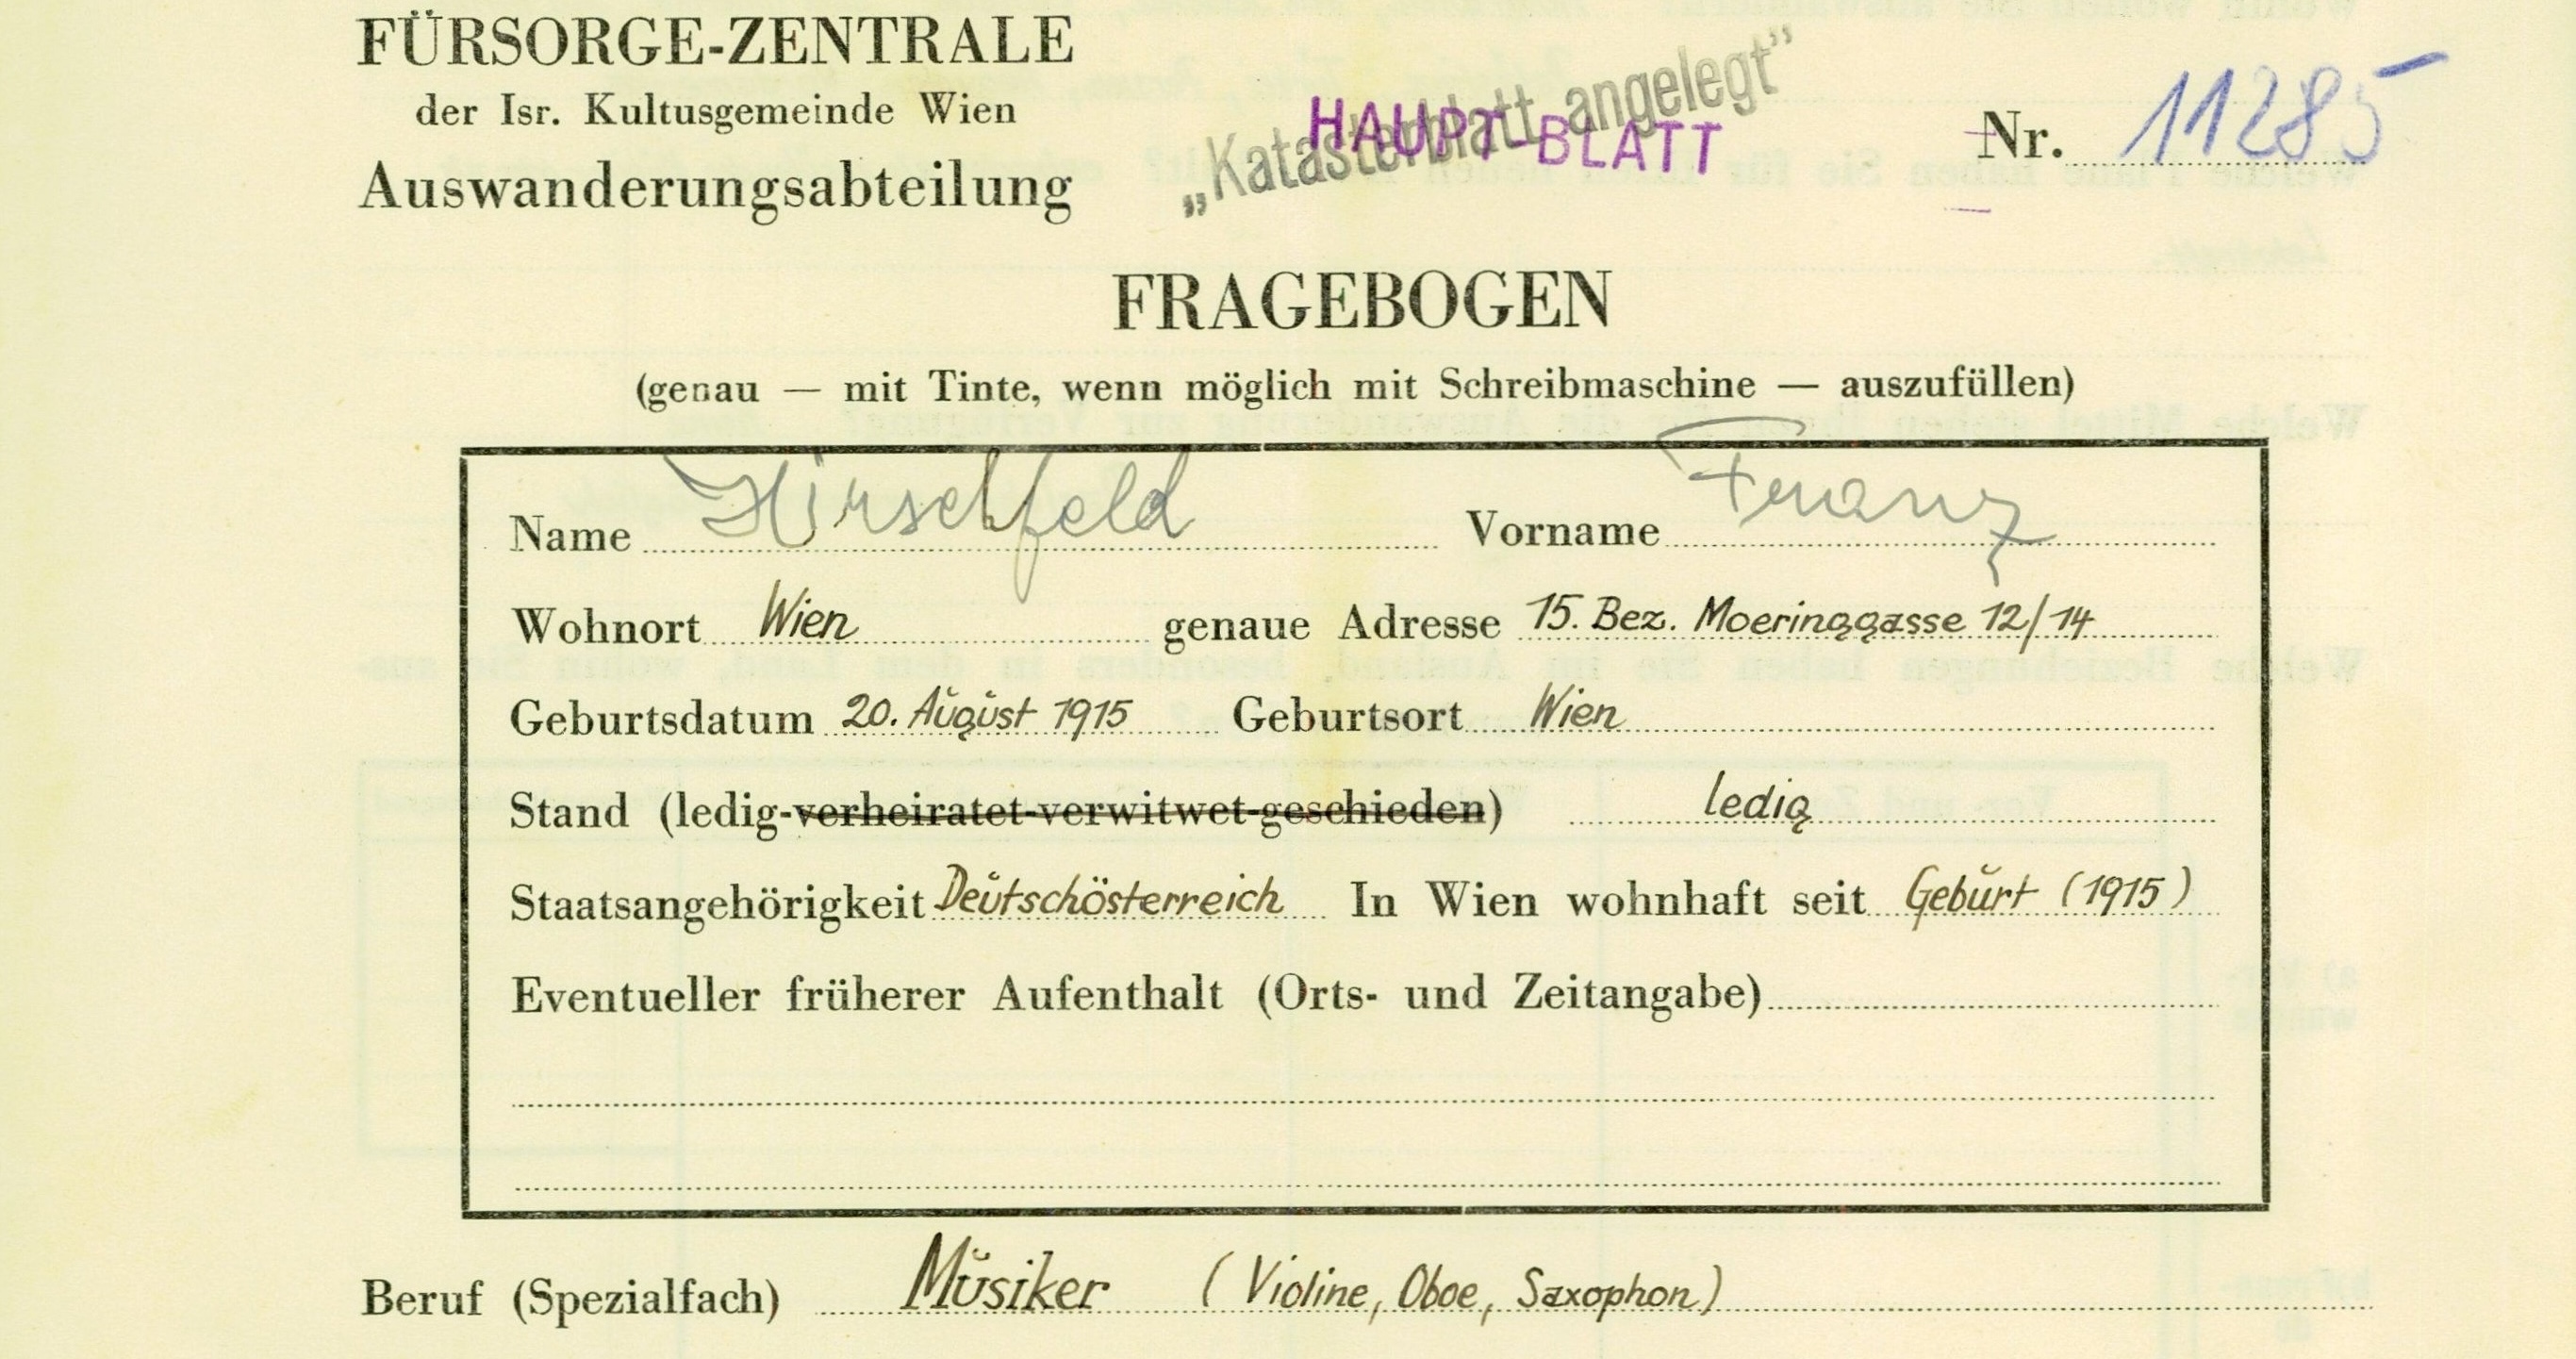 FÜRSORGE-ZENTRALE
der Isr. Kultusgemeinde Wien
Auswanderungsabteilung
„Katasterblatt angelegt"
HAUPT-BLATT
Nr. 11285
FRAGEBOGEN
(genau — mit Tinte, wenn möglich mit Schreibmaschine — auszufüllen)
Name Hirschfeld Vorname Franz
Wohnort Wien genaue Adresse 15. Bez. Moeringgasse 12/14
Geburtsdatum 20. August 1915 Geburtsort Wien
Stand (ledig-verheiratet-verwitwet-geschieden) ledig
Staatsangehörigkeit Deutschösterreich In Wien wohnhaft seit Geburt (1915)
Eventueller früherer Aufenthalt (Orts- und Zeitangabe)
Beruf (Spezialfach) Musiker (Violine, Oboe, Saxophon)